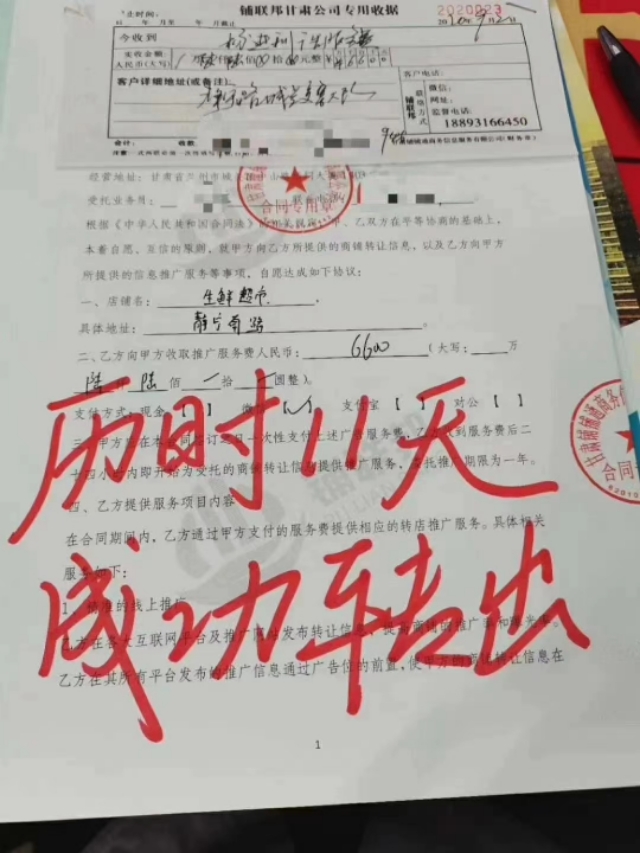 止时间：
铺联邦甘肃公司专用收据
2020023
年 月至 年 月截止
今收到
实收金额：
人民币(大写)
客户详细地址(或备注)：
客户电话：
铺联邦
联络方式
微信：
网址：
监督电话：
18893166450
会计：
经营地址：甘肃省兰州市城
受托业务员：
合同专用章
根据《中华人民共和国合同法》的相关民
甲、乙双方在平等协商的基础上，
本着自愿、互信的原则，就甲方向乙方所提供的商铺转让信息，以及乙方向甲方
所提供的信息推广服务等事项，自愿达成如下协议：
一、店铺名：生鲜超市。
具体地址：静宁南路。
二、乙方向甲方收取推广服务费人民币：6600（大写： 万
陆 仟 陆 佰 拾 圆整）。
支付方式：现金【 】 微 支付宝【 】 对公【 】
历时11天
三 甲方应在本合同签订之日一次性支付上述广告服务费，乙方收到服务费后二
十四小时内即开始为受托的商铺转让信息提供推广服务，委托推广期限为一年。
四、乙方提供服务项目内容
在合同期间内，乙方通过甲方支付的服务费提供相应的转店推广服务。具体相关
服务如下：
成功转出
1、精准的线上推广
乙方在各大互联网平台及推广网站发布转让信息，提高商铺的推广率和曝光率。
乙方在其所有平台发布的推广信息通过广告位的前置，使甲方的商铺转让信息在
合同
1